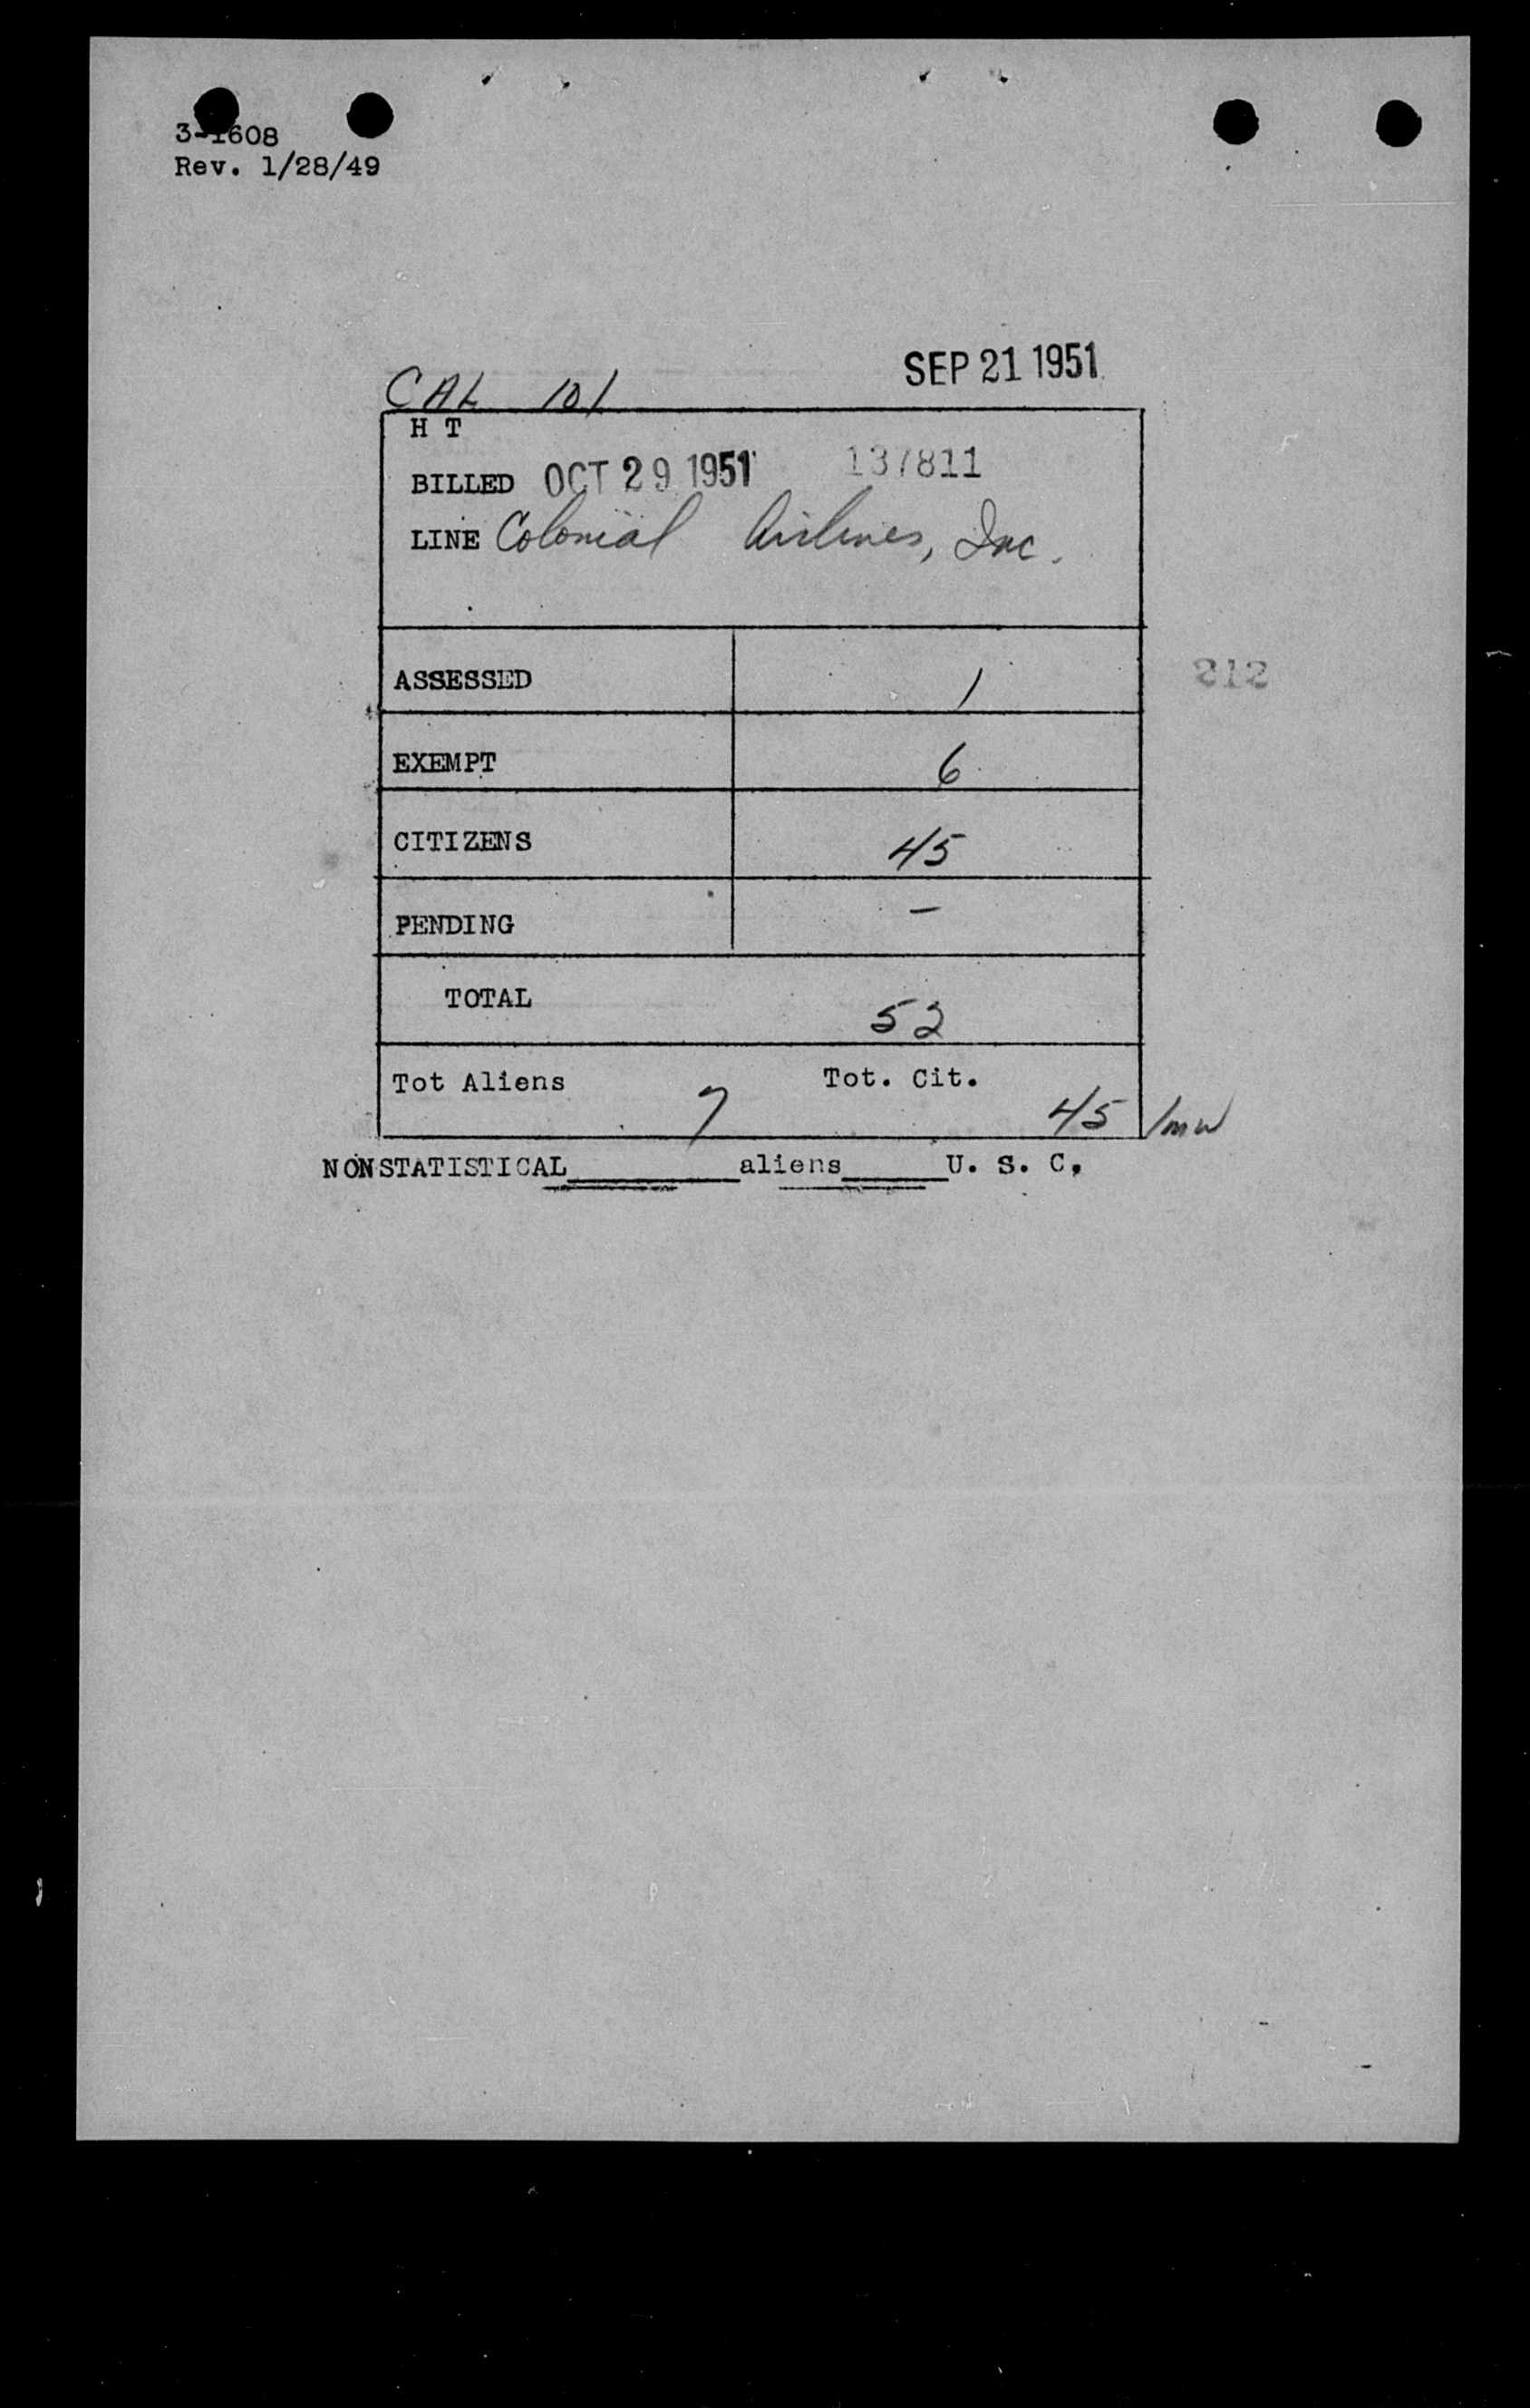 3-1608
Rev. 1/28/49
SEP 21 1951
CAL 101
H T
BILLED OCT 29 1951 137811
LINE Colonial Airlines, Inc.
ASSESSED 1
212
EXEMPT 6
CITIZENS 45
PENDING -
TOTAL 52
Tot Aliens 7 Tot. Cit. 45 /mw
NONSTATISTICAL______aliens____U. S. C.